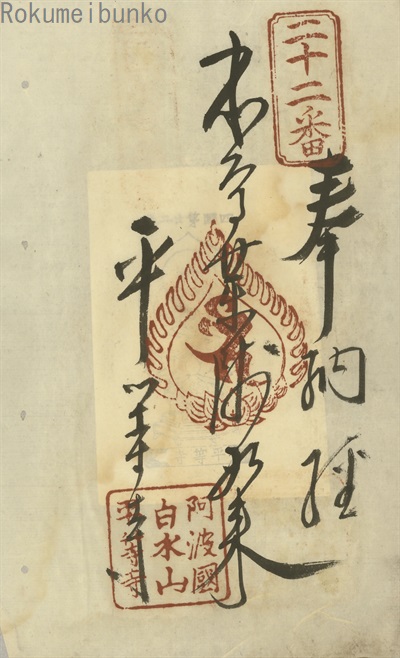 Rokumeibunko
二十二番
奉納経
本尊薬師如来
平等寺
阿波國
白水山
平等寺